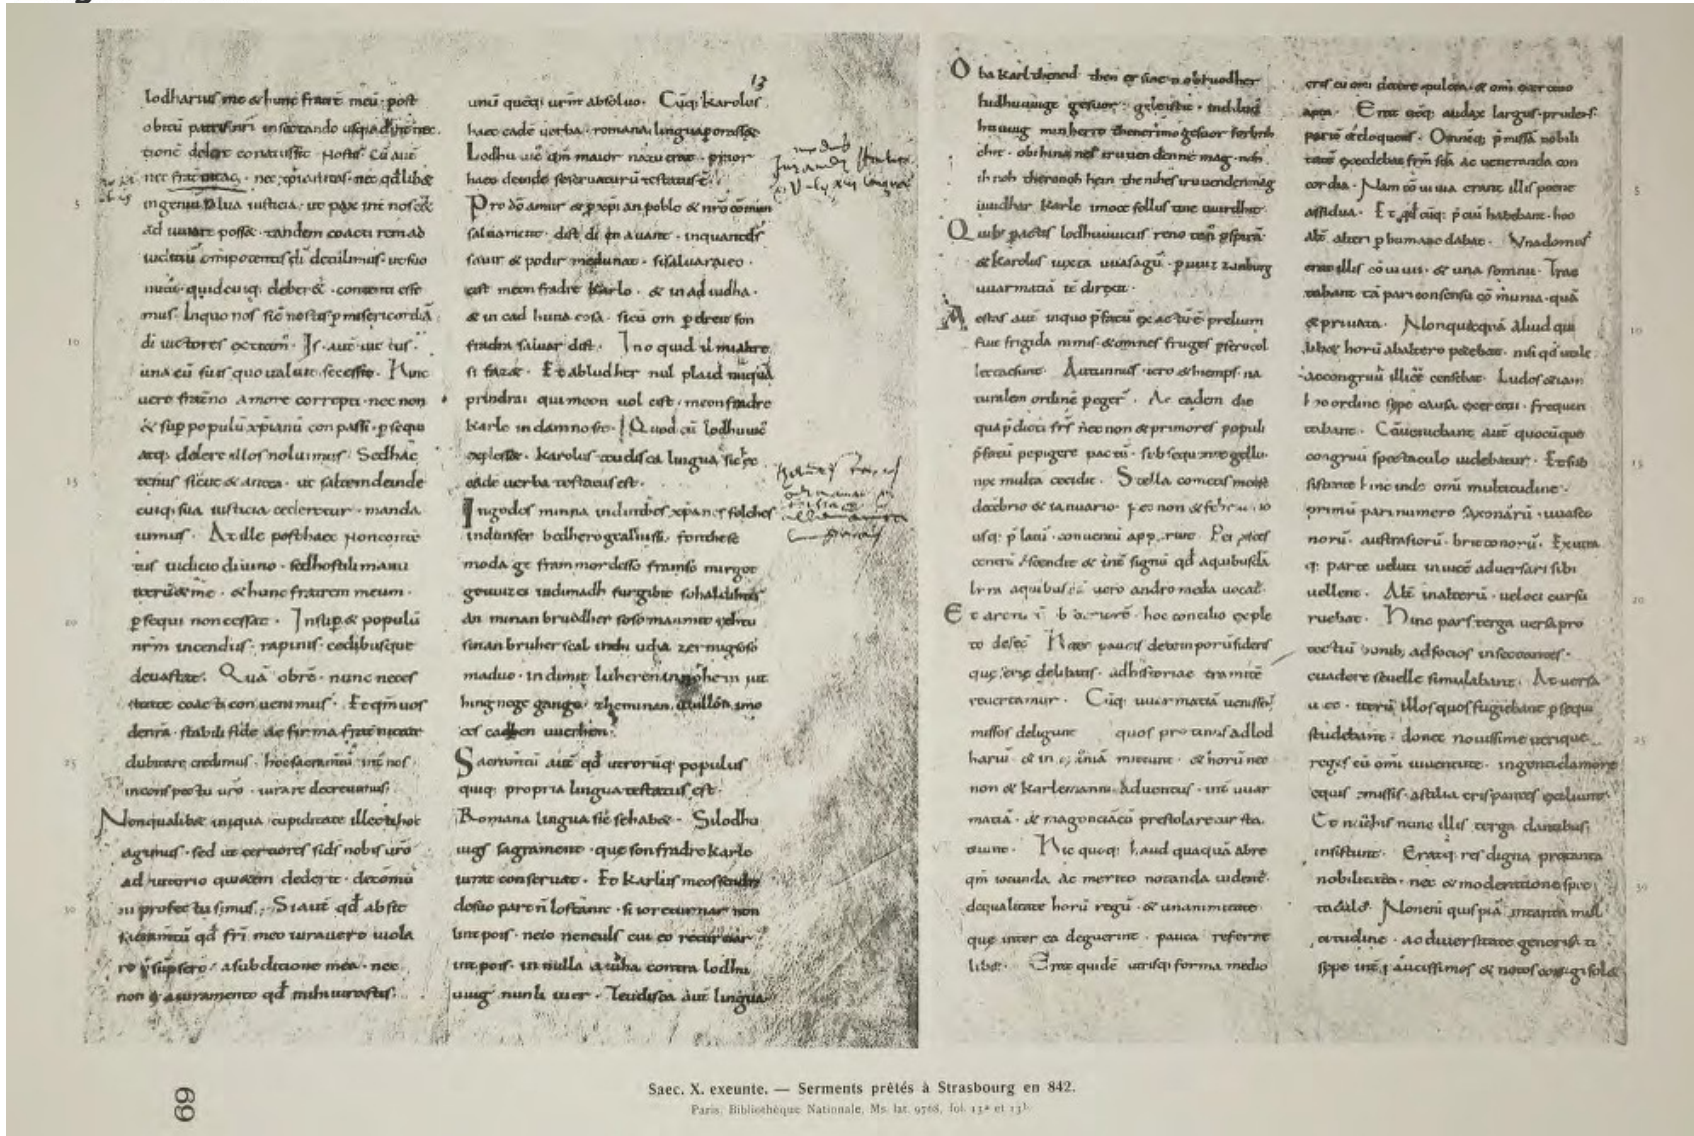 13
lodharius me & hunc fratrē meū · post
obitū patris nr̄i insectando usq; ad int̄nec
tionē delere conatus sit nostis. Cū aut̄
nec fraternitas · nec xp̄ianitas · nec qd̄libet
ingeniū salua iusticia · ut pax int̄ nos e͞e&
ad iuuare posset · tandem coacti rem ad
iudiciū omipotentis dī detulimus · ut suo
nutu · quid cuiq; deberet · contenti esse
mus · Inquo nos sic̄ nostis p misericordiā
dī uictores extitim̄ · Is · aut̄ uictus ·
una cū suis quo ualuit secessit · Hinc
uero fraterno amore correpti · nec non
& sup populū xp̄ianū conpassi · psequi
atq; delere illos noluimus · Sed hac
tenus sicut & antea · ut saltem deinde
cuiq; sua iusticia cederetur · manda
uimus · At ille post haec non conten
tus iudicio diuino · sed hostili manu
iterū & me · & hunc fratrem meum ·
psequi non cessat · Insup & populū
nr̄m incendiis · rapinis · cedibusque
deuastat · Quā obrē · nunc neces
sitate coacti conuenimus · Et qm̄ uos
de nr̄a · stabili fide ac firma fraternitate
dubitare credimus · hoc sacramtū int̄ nos
in conspectu ur̄o · iurare decreuimus ·
Non qualibet iniqua cupiditate illecti hoc
agimus · sed ut certiores si ds̄ nobis ur̄o
ad iutorio quietem dederit · de com̄u
ni profectu simus · Si aut̄ qd̄ absit
sacramtū qd̄ fri meo iurauero uiola
re psūpsero · a subditione mea · nec
non & a iuramento qd̄ mihi iurastis ·
unū quēq; ur̄m absoluo · Cūq; karolus
haec eadē uerba · romana lingua porasset
Lodhuuic̄ qm̄ maior natu erat · prior
haec deinde se seruaturū testatus ē ·
Pro dō amur & p xp̄ian poblo & nr̄o cōmun
saluament · dist di en auant · inquantds̄
sauir & podir medunat · sisaluaraieo ·
cist meon fradre Karlo · & in ad iudha ·
& in cad huna cosa · sicū om p dreit son
fradra saluar dist · Ino quid il mialtre
si faz& · Et abludher nul plaid nūquā
prindrai qui meon uol cist · meon fradre
Karle in damno sit · Quod cū lodhuuic̄
explesset · karolus teudisca lingua sic̄ ec
eadē uerba testatus est ·
Ingodes minna indinthes xpanes folches
indunser bedhero gealtnissi · fonthese
moda ge frammordesso framso mirgot
geuuizci indimadh furgibit sohaldihtes
an minan bruodher soso manmit rehtu
sinan bruher scal inthi utha zermigsoso
maduo · indimit luheren inno hein iut
hing nege gango · zheminan uuillon imo
ces cadhen uuerhen ·
Sacramtū aut̄ qd̄ utrorūq; populus
quiq; propria lingua testatus est ·
Romana lingua sic̄ se habet · Silodhu
uigs sagrament · que son fradre karlo
iurat conseruat · Et Karlus meos sendra
de suo part n̄ lostanit · si io returnar non
lint pois · neio neneuls cui eo returnar
int pois · in nulla aiuha contra lodhu
uuig nun li iuer · Teudisca aut̄ lingua
modus
jurandi
Oba Karl then eid then er sinen obruodher
ludhuuuige gesuor · geleistit · indlud
huuuig min herro thenerimo gesuor forbrih
chit · obihina nes iruuenden ne mag · noh
ih noh thero noh hein thenihes iruuenden mag
uuidhar karle imoce follus tine uuirdhit ·
Quib; pactis lodhuuuicus reno ten͞ p spirā
& Karolus iuxta uuasagū · p uuizzunburg
uuarmatiā tē direxit ·
Aestas aut̄ inquo
fuit frigida nimis & omnes fruges pserocol
lectae sunt · Autumnus · uero & hiemps · na
turalem ordinē peger͞ · Ac eadem die
qua p̄dicti frs̄ nec non & primores populi
p̄fatū pepigere pactū · subsequente gelu ·
nix multa cecidit · Stella cometis
decēbrio & ianuario · nec non &
Et
reuertamur · Cūq; uuarmatiā uenisset
missos deligunt quos protinus ad lod
hariū
non & Karlemanni aduentus · int̄ uuar
matiā · & magonciacū prestolare cur sta
tuunt · Hic quoq; haud quaquā abre
qm̄ iocunda ac merito notanda uident̄ ·
de qualitate horū regū · & unanimitate
que inter ea deguerint · pauca referre
libet · Erat quidē utrisq; forma medio
cris cū omi decore pulcra · & omi exercitio
apta · Erat utq; audax largus · prudens
pariт & eloquens · Omnēq; p̄missā nobili
tatē excedebat frm̄ sc̄a ac ueneranda con
cordia · Nam cōuiuia erant illis poene
assidua · Et qd̄cūq; p̄ciū habebant · hoc
alt̄ alteri p humane dabat · Una domus
erat illis cōuiuii · & una somni · Trac
tabant tā pari consensu cōmunia · quā
& priuata · Non quicquā aliud qui
libet horū ab altero petebat · nisi qd̄ utile
ac congruū illi eē censebat · Ludos &iam
hoc ordine sepe causa exercitii · frequen
tabant · Cōueniebant aut̄ quocūque
congruū spectaculo uidebatur · Et sub
sistente hinc inde omi multitudine ·
primū pari numero saxonarū · uuasco
norū · austrasiorū · brittonorū · Ex utra
q; parte ueluti inuicē aduersari sibi
uellent · Alt̄ inalterū · ueloci cursu
ruebat · Hinc pars terga uersa pro
tecti umbonib; ad socios insectantes ·
euadere se uelle simulabant · At uersa
uice · iterū illos quos fugiebant psequi
studebant · donec nouissime utrique
reges cū omi iuuentute · ingenti clamore
equis emissis · astilia crispantes exiliunt
Et nūc his nunc illis terga dantibus
insistunt · Eratq; res digna pro tanta
nobilitate · nec & moderatione spec
taculo · Non enī quispiā in tanta mul
titudine · ac diuersitate generis
5
10
15
20
25
30
5
10
15
20
25
30
69
Saec. X. exeunte. — Serments prêtés à Strasbourg en 842.
Paris, Bibliothèque Nationale, Ms. lat. 9768, fol. 13ª et 13ᵇ.